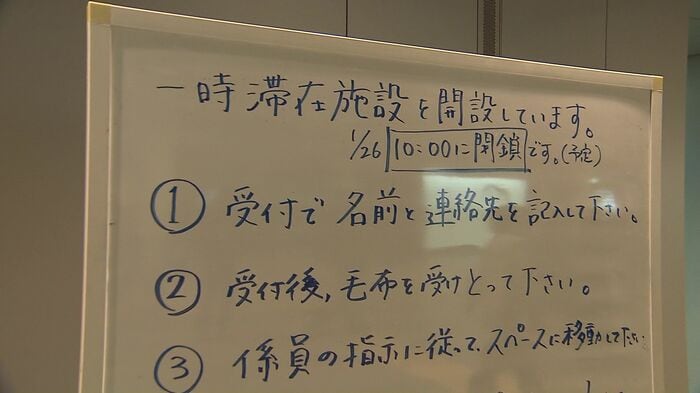 一時滞在施設を開設しています。
1/26 10:00に閉鎖です。(予定)
① 受付で名前と連絡先を記入して下さい。
② 受付後、毛布を受けとって下さい。
③ 係員の指示に従って、スペースに移動して下さい